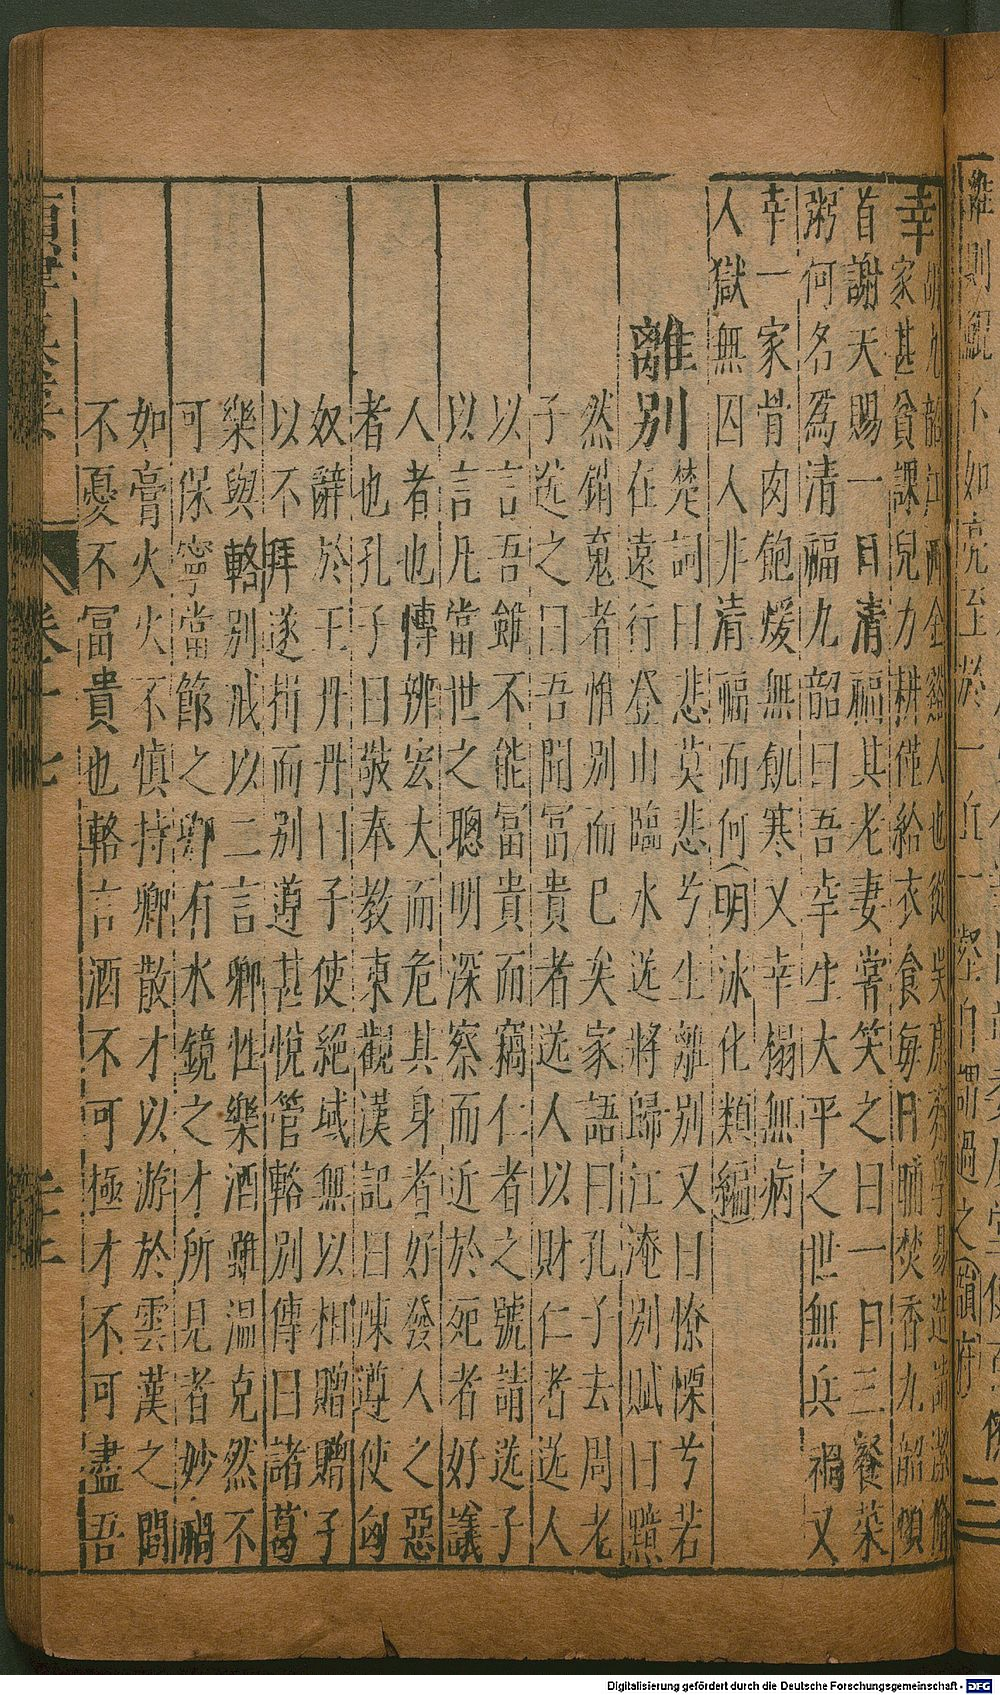 幸
胡九韶江西金谿人也從吳康齋學易造詣潔脩
家甚貧課兒力耕僅給衣食毎日晡焚香九韶頓
首謝天賜一日清福其老妻嘗笑之曰一日三餐菜
粥何名爲清福九韶曰吾幸生大平之世無兵禍又
幸一家骨肉飽煖無飢寒又幸榻無病
人獄無囚人非清福而何(明泳化類編)
離別
楚詞曰悲莫悲兮生離别又曰憭慄兮若
在遠行登山臨水送將歸江淹别賦曰黯
然銷䰟者惟别而已矣家語曰孔子去周老
子送之曰吾聞冨貴者送人以財仁者送人
以言吾雖不能冨貴而竊仁者之號請送子
以言凡當世之聰明深察而近於死者好議
人者也慱辨宏大而危其身者好發人之惡
者也孔子曰敬奉教東觀漢記曰陳遵使匈
奴辭於王丹丹曰子使絕域無以相贈贈子
以不拜遂揖而别遵甚悅管輅别傳曰諸葛
樂與輅别戒以二言卿性樂酒雖温克然不
可保寧當節之卿有水鏡之才所見者妙禍
如膏火火不慎持卿散才以游於雲漢之間
不憂不冨貴也輅言酒不可極才不可盡吾
卷十七
Digitalisierung gefördert durch die Deutsche Forschungsgemeinschaft - DFG